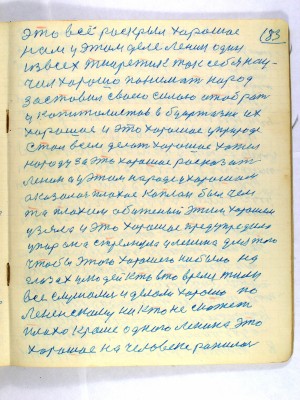 183
это всё раскрыл хорошое
нам у этом деле Ленин один
из всех тиаретик так себя нау-
чил хорошо понимать народ
заставил своею силою отобрат
у капиталистов в буржазии их
хорошое и это хорошое у природе
стал всем делат хорошое хотел
народу за это хорошое рассказат
Ленин а у этом народе у хорошом
оказалас плохое Каплан был чем
та плохим обиженый этим хорошим
узяла и это хорошое предупредила
упор она стрельнула у Ленина для того
чтобы этого хорошего небыло на
глазах у людей Кто в то время тому
все слушали и делали хорошо по
Ленинскому ни кто не скажет
плохо кроме одного Ленина это
хорошое на человеке ранилас